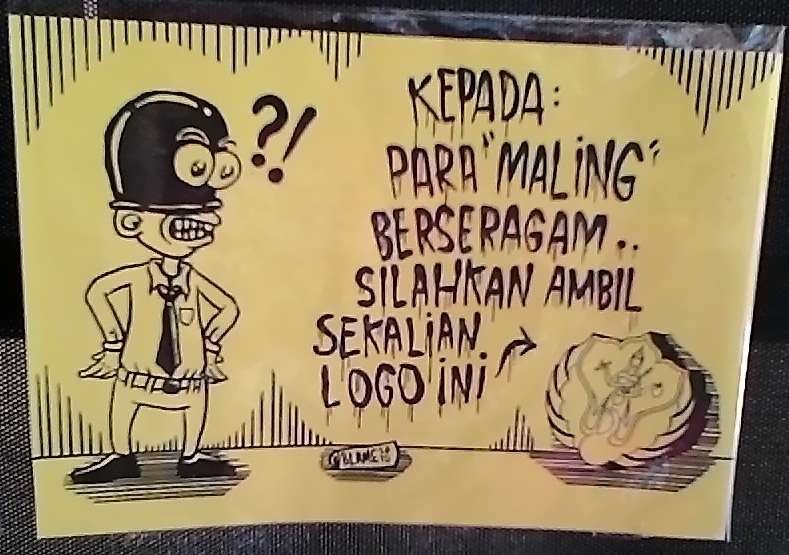 ?!
KEPADA:
PARA "MALING"
BERSERAGAM..
SILAHKAN AMBIL
SEKALIAN
LOGO INI